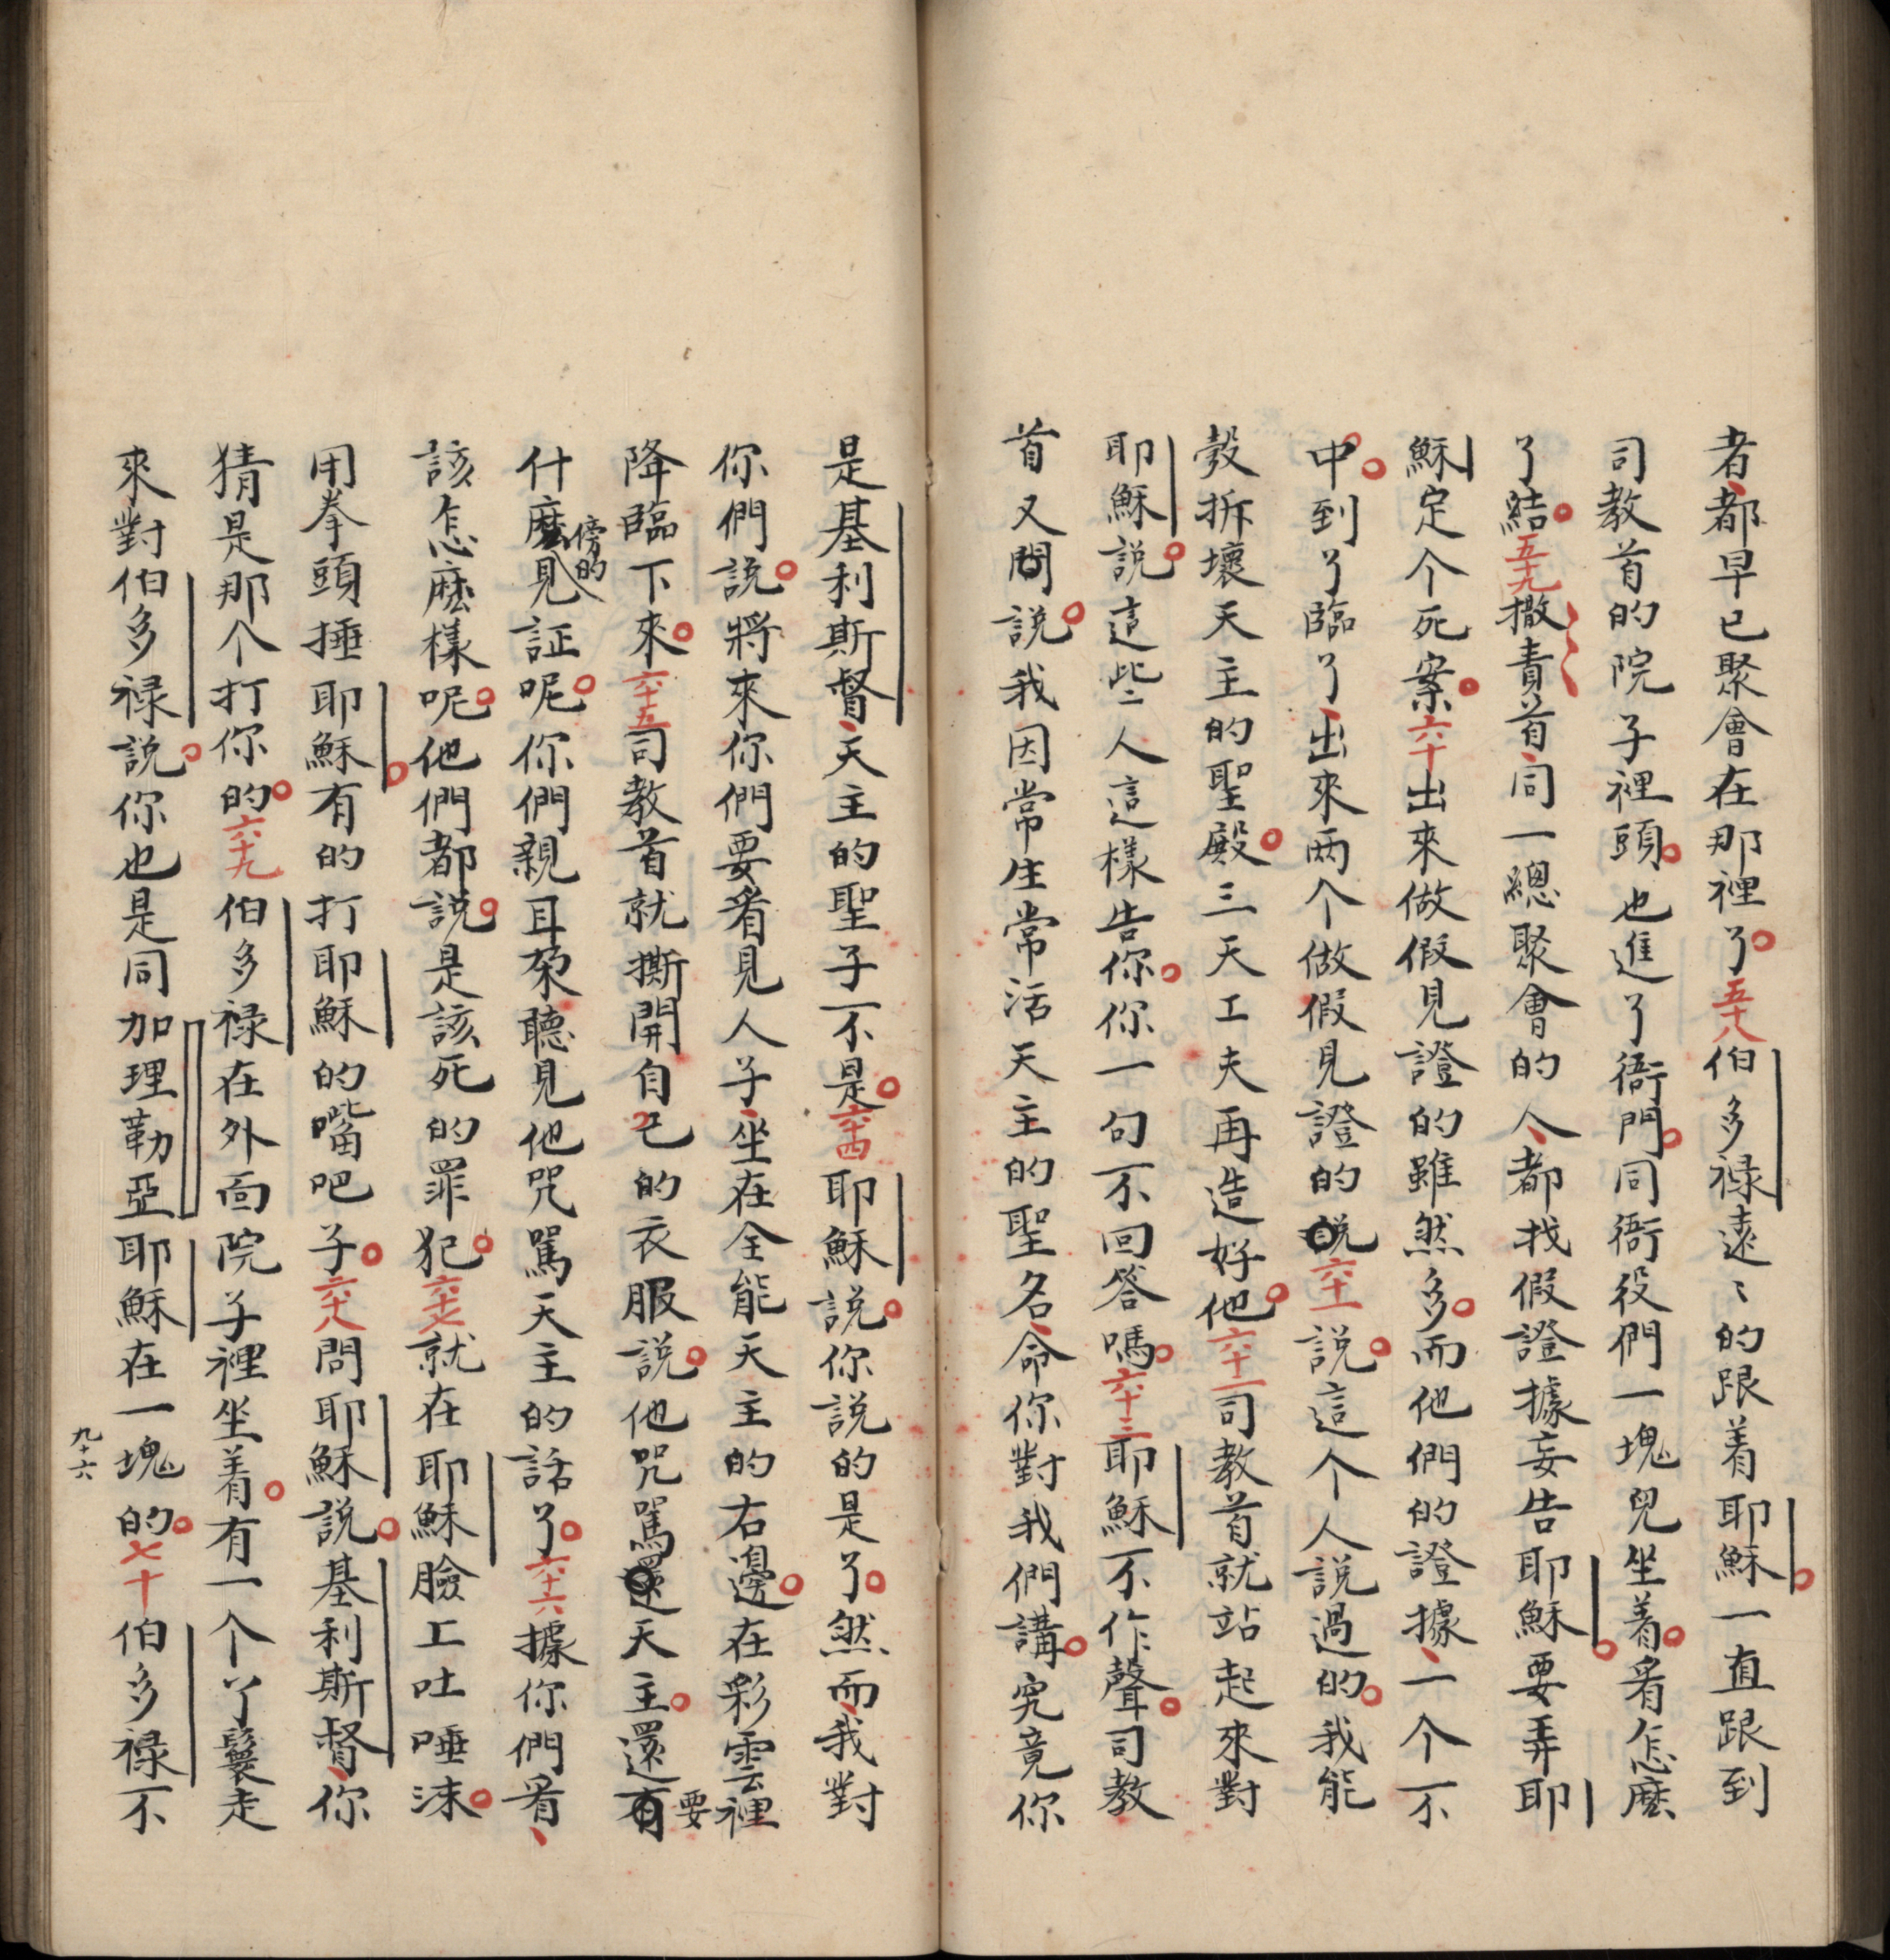 者、都早已聚會在那裡了。五十八伯多禄遠〻的跟着耶穌。一直跟到
司教首的院子裡頭。也進了衙門。同衙役們一塊兒坐着。看怎麽
了結。五十九撒責首、同一總聚會的人、都找假證據妄告耶穌。要弄耶
穌定个死案。六十出來做假見證的雖然多。而他們的證據、一个不
中。到了臨了、出來両个做假見證的説六十一説。這个人説過的。我能
彀拆壞天主的聖殿。三天工夫再造好他。六十二司教首就站起來對
耶穌説。這些人這樣告你。你一句不回答嗎。六十三耶穌不作聲。司教
首又問説。我因常生常活天主的聖名、命你對我們講。究竟你
是基利斯督、天主的聖子不是。六十四耶穌説。你説的是了。然而、我對
你們説。將來你們要看見人子、坐在全能天主的右邊。在彩雲裡
降臨下來。六十五司教首就撕開自己的衣服説。他咒駡還天主。還有要
什麽傍的見証呢。你們親耳朶聽見他咒駡天主的話了。六十六據你們看、
該怎麽樣呢。他們都説。是該死的罪犯。六十七就在耶穌臉上吐唾沫。
用拳頭捶耶穌。有的打耶穌的嘴吧子。六十八問耶穌説。基利斯督、你
猜是那个打你的。六十九伯多禄在外面院子裡坐着。有一个丫鬟走
來對伯多禄説。你也是同加理勒亞耶穌在一塊的。七十伯多禄不
九十六